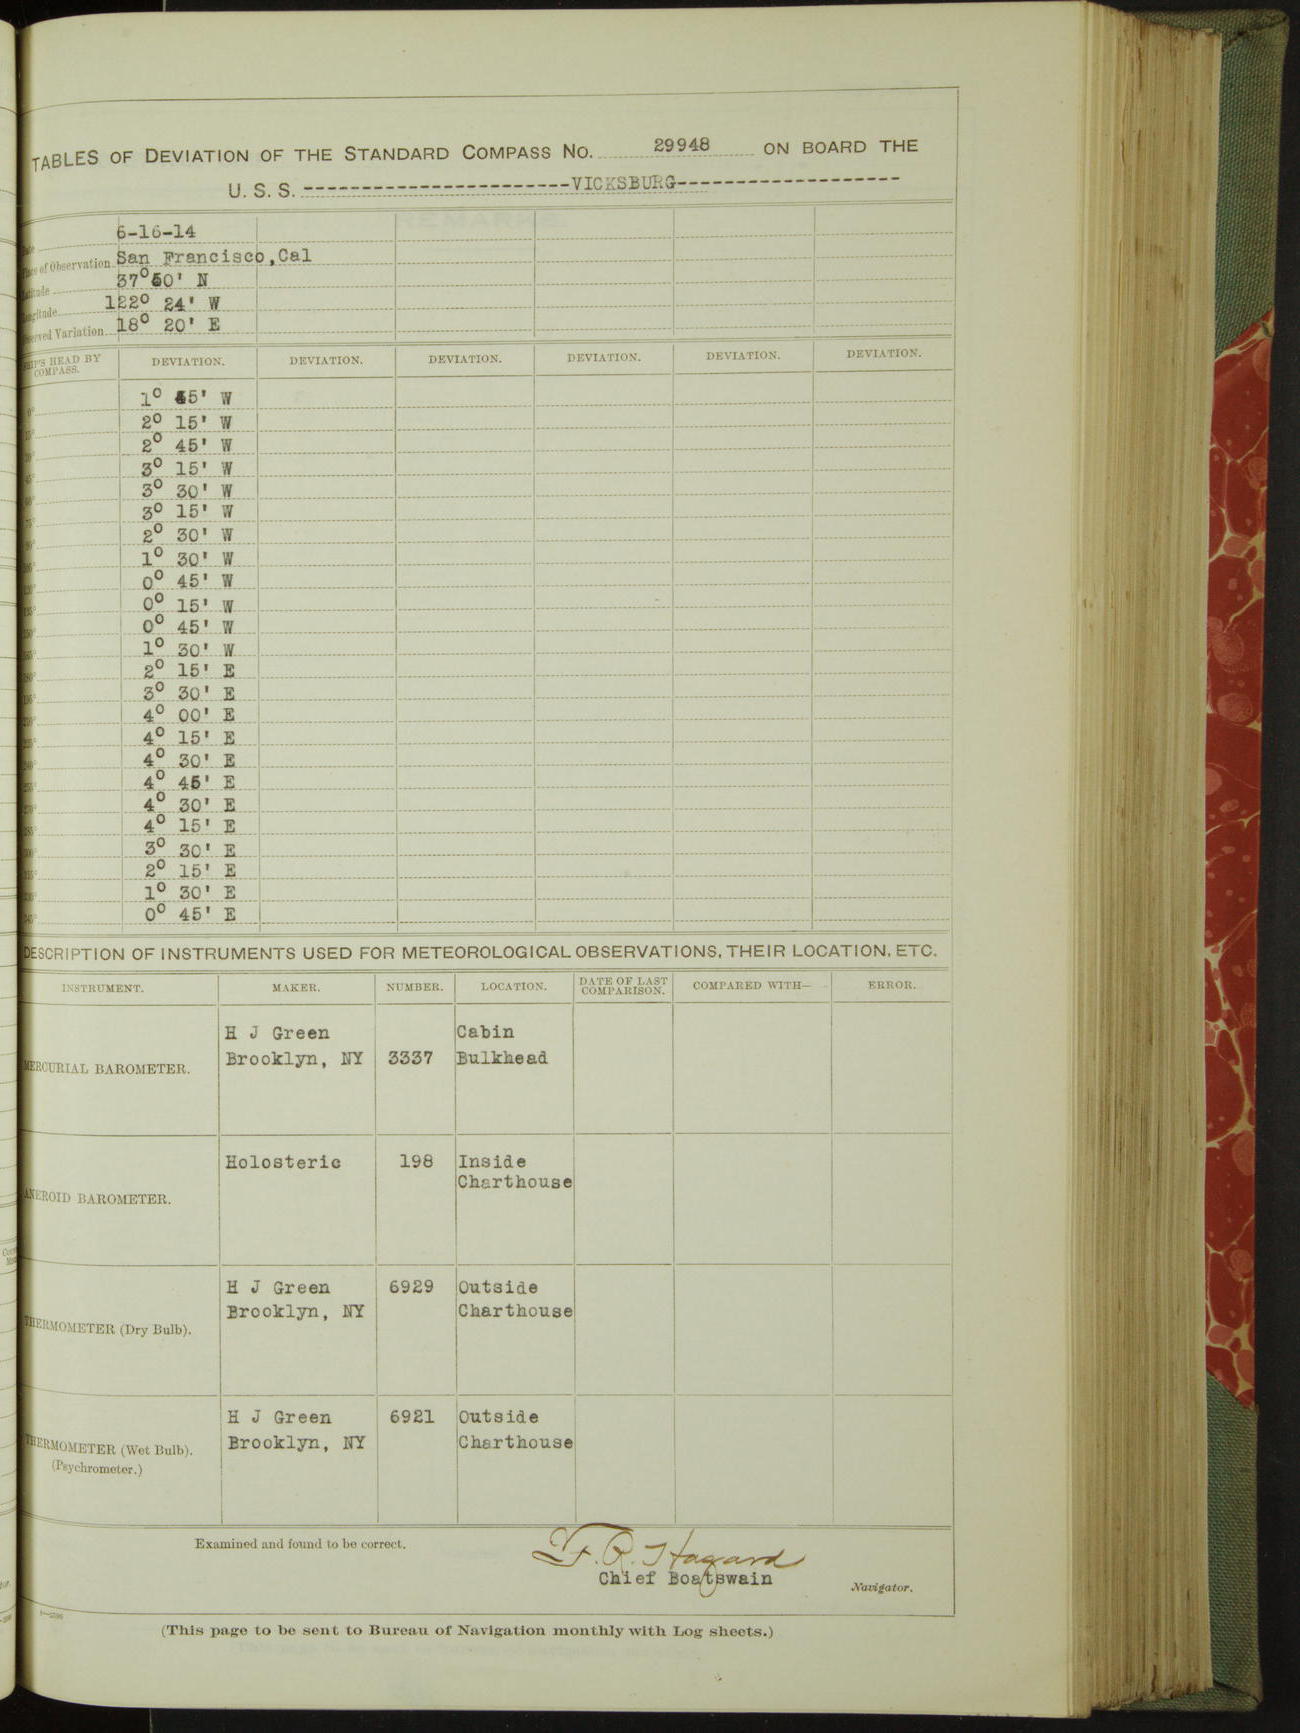 TABLES OF DEVIATION OF THE STANDARD COMPASS NO. 29948 ON BOARD THE
U. S. S. VICKSBURG
6-16-14
Place of Observation San Francisco, Cal
Latitude 37° 50' N
Longitude 122° 24' W
Observed Variation 18° 20' E
SHIP'S HEAD BY COMPASS. DEVIATION. DEVIATION. DEVIATION. DEVIATION. DEVIATION. DEVIATION.
1° 45' W
2° 15' W
2° 45' W
3° 15' W
3° 30' W
3° 15' W
2° 30' W
1° 30' W
0° 45' W
0° 15' W
0° 45' W
1° 30' W
2° 15' E
3° 30' E
4° 00' E
4° 15' E
4° 30' E
4° 45' E
4° 30' E
4° 15' E
3° 30' E
2° 15' E
1° 30' E
0° 45' E
DESCRIPTION OF INSTRUMENTS USED FOR METEOROLOGICAL OBSERVATIONS, THEIR LOCATION, ETC.
INSTRUMENT. MAKER. NUMBER. LOCATION. DATE OF LAST COMPARISON. COMPARED WITH— ERROR.
H J Green Cabin
MERCURIAL BAROMETER. Brooklyn, NY 3337 Bulkhead
Holosteric 198 Inside
ANEROID BAROMETER. Charthouse
H J Green 6929 Outside
Brooklyn, NY Charthouse
THERMOMETER (Dry Bulb).
H J Green 6921 Outside
Brooklyn, NY Charthouse
THERMOMETER (Wet Bulb).
(Psychrometer.)
Examined and found to be correct.
F. R. Hazard
Chief Boatswain
Navigator.
(This page to be sent to Bureau of Navigation monthly with Log sheets.)